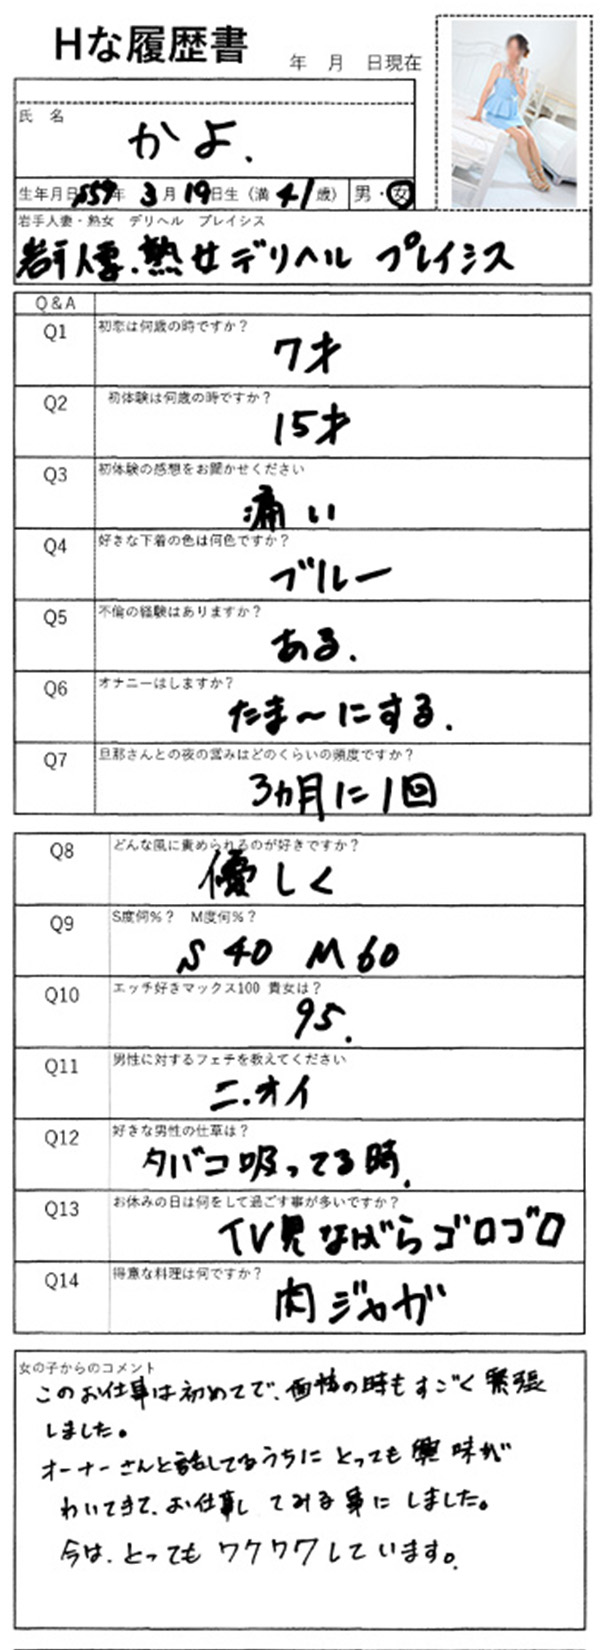 Hな履歴書
年 月 日現在
氏 名
かよ.
生年月日 S59年 3月 19日生 (満 41歳) 男・女
岩手人妻・熟女 デリヘル プレイシス
岩手人妻.熟女デリヘル プレイシス
Q&A
Q1 初恋は何歳の時ですか?
7才
Q2 初体験は何歳の時ですか?
15才
Q3 初体験の感想をお聞かせください
痛い
Q4 好きな下着の色は何色ですか?
ブルー
Q5 不倫の経験はありますか?
ある.
Q6 オナニーはしますか?
たま〜にする.
Q7 旦那さんとの夜の営みはどのくらいの頻度ですか?
3ヵ月に1回
Q8 どんな風に責められるのが好きですか?
優しく
Q9 S度何%? M度何%?
S 40 M 60
Q10 エッチ好きマックス100 貴女は?
95.
Q11 男性に対するフェチを教えてください
ニ.オイ
Q12 好きな男性の仕草は?
タバコ吸ってる時.
Q13 お休みの日は何をして過ごす事が多いですか?
TV見ながらゴロゴロ
Q14 得意な料理は何ですか?
肉ジャガ
女の子からのコメント
このお仕事は初めてで、面接の時もすごく緊張
しました。
オーナーさんと話してるうちにとっても興味が
わいてきて、お仕事してみる事にしました。
今は、とってもワクワクしています。